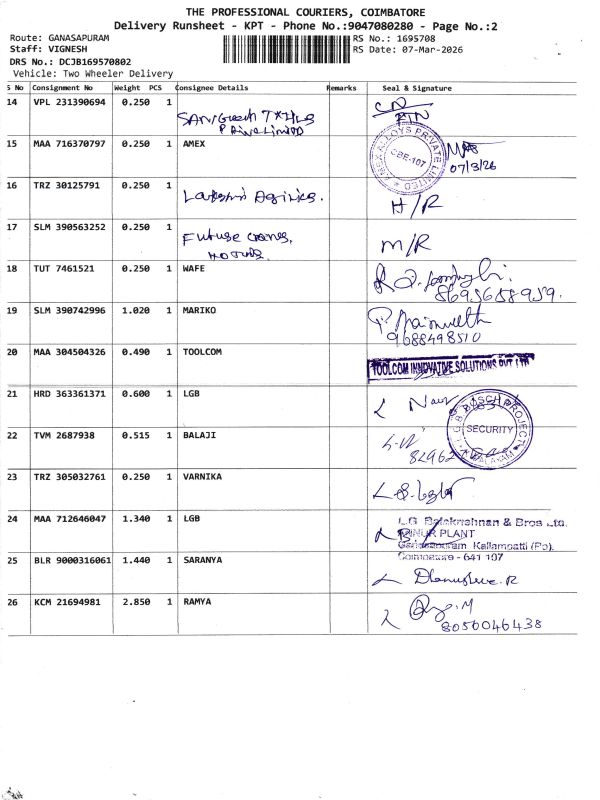 THE PROFESSIONAL COURIERS, COIMBATORE
Delivery Runsheet - KPT - Phone No.:9047080280 - Page No.:2
Route: GANASAPURAM
RS No.: 1695708
Staff: VIGNESH
RS Date: 07-Mar-2026
DRS No.: DCJB169570802
Vehicle: Two Wheeler Delivery
S No Consignment No Weight PCS Consignee Details Remarks Seal & Signature
14 VPL 231390694 0.250 1
Private Limited
15 MAA 716370797 0.250 1 AMEX
AMEX ALLOYS PRIVATE LIMITED
CBE-107
07/3/26
16 TRZ 30125791 0.250 1
Lakshmi
H/R
17 SLM 390563252 0.250 1
Future
M/R
18 TUT 7461521 0.250 1 WAFE
8695658959.
19 SLM 390742996 1.020 1 MARIKO
9688498510
20 MAA 304504326 0.490 1 TOOLCOM
TOOLCOM INNOVATIVE SOLUTIONS PVT LTD
21 HRD 363361371 0.600 1 LGB
SECURITY
22 TVM 2687938 0.515 1 BALAJI
23 TRZ 305032761 0.250 1 VARNIKA
24 MAA 712646047 1.340 1 LGB
L.G Balakrishnan & Bros Ltd.
PLANT
Kallampatti (Po).
Coimbatore - 641 107
25 BLR 9000316061 1.440 1 SARANYA
26 KCM 21694981 2.850 1 RAMYA
8050046438